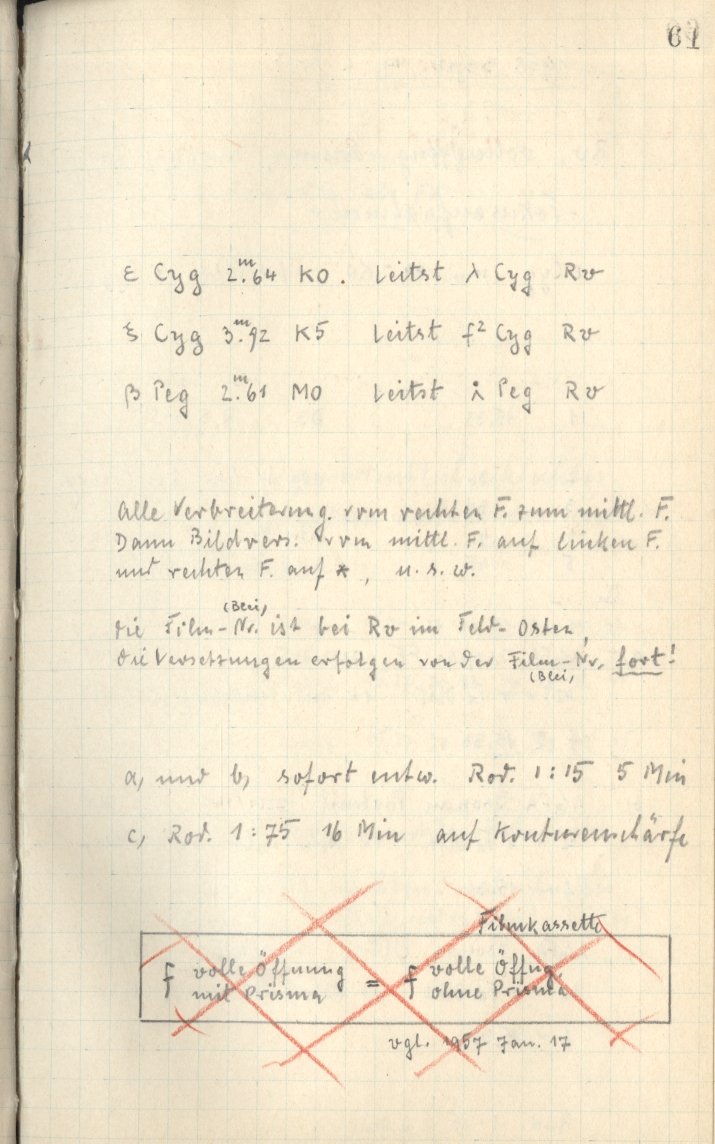 61
ε Cyg 2.ᵐ64 K0. Leitst λ Cyg Rv
ξ Cyg 3.ᵐ92 K5 Leitst f² Cyg Rv
β Peg 2.ᵐ61 M0 Leitst λ Peg Rv
Alle Verbreiterung. vom rechten F. zum mittl. F.
Dann Bildvers. vom mittl. F. auf linken F.
und rechten F. auf *, u. s. w.
(Blei)
Die Film-Nr. ist bei Rv im Feld-Osten,
die Versetzungen erfolgen von der Film-Nr. fort!
(Blei)
a, und b, sofort entw. Rod. 1:15 5 Min
c, Rod. 1:75 16 Min auf Konturenschärfe
Filmkassette
f volle Öffnung mit Prisma = f volle Öffng. ohne Prisma
vgl. 1957 Jan. 17